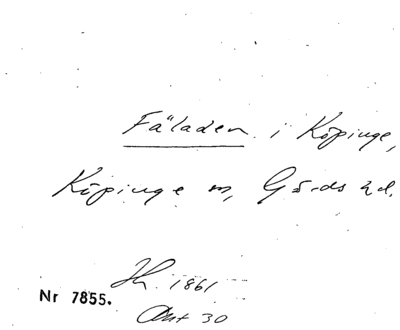 Fäladen i Köpinge,
Köpinge sn, Gärds hd.
Hk 1861
Nr 7855.
Akt 30